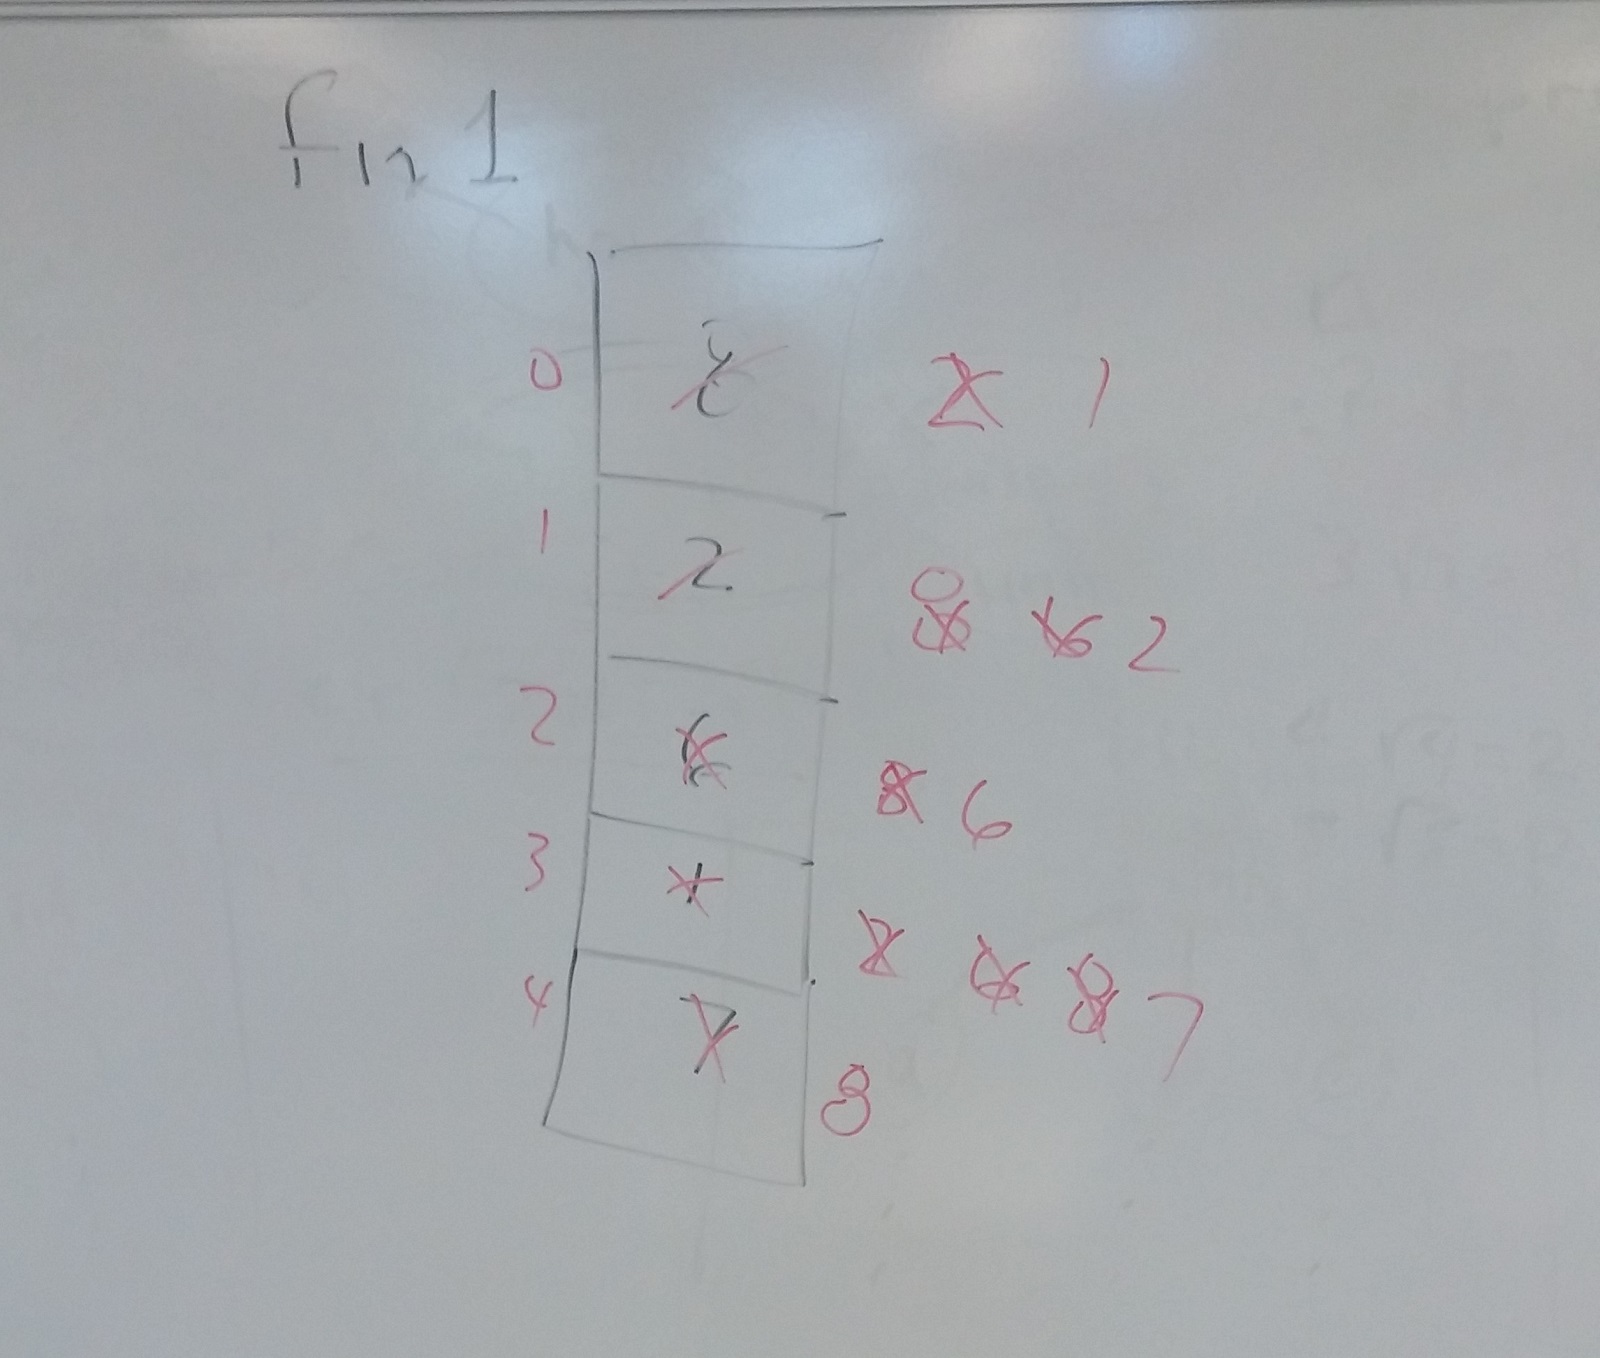 fin 1
0 8 2 1
1 2 8 6 2
2 6 8 6
3 1 2 6 8 7
4 7 8